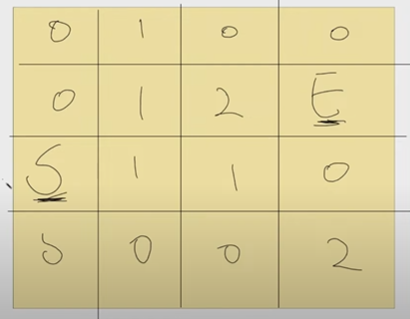 0 1 0 0
0 1 2 E
S 1 1 0
0 0 2